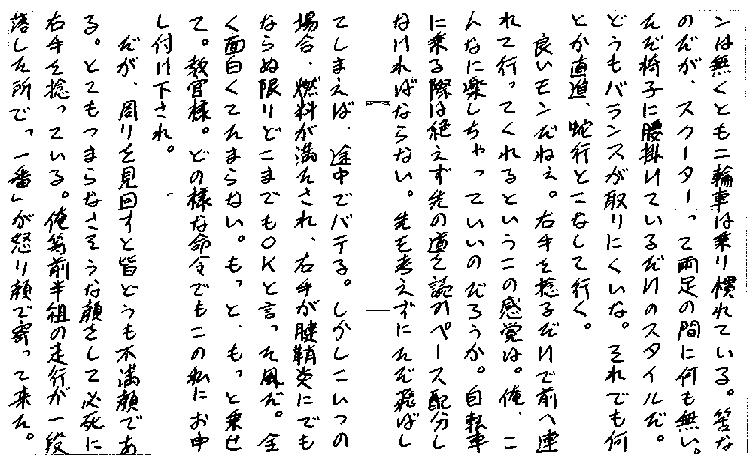 ンは無くとも二輪車は乗り慣れている。筈な
のだが、スクーターって両足の間に何も無い。
ただ椅子に腰掛けているだけのスタイルだ。
どうもバランスが取りにくいな。それでも何
とか直進、蛇行とこなして行く。
良いモンだねぇ。右手を捻るだけで前へ連
れて行ってくれるというこの感覚は。俺、こ
んなに楽しちゃっていいのだろうか。自転車
に乗る際は絶えず先の道を読みペース配分し
なければならない。先を考えずにただ飛ばし
てしまえば、途中でバテる。しかしこいつの
場合、燃料が満たされ、右手が腱鞘炎にでも
ならぬ限りどこまでもOKと言った風だ。全
く面白くてたまらない。もっと、もっと乗せ
て。教官様。どの様な命令でもこの私にお申
し付け下され。
だが、周りを見回すと皆どうも不満顔であ
る。とてもつまらなさそうな顔をして必死に
右手を捻っている。俺等前半組の走行が一段
落した所で、「一番」が怒り顔で寄って来た。